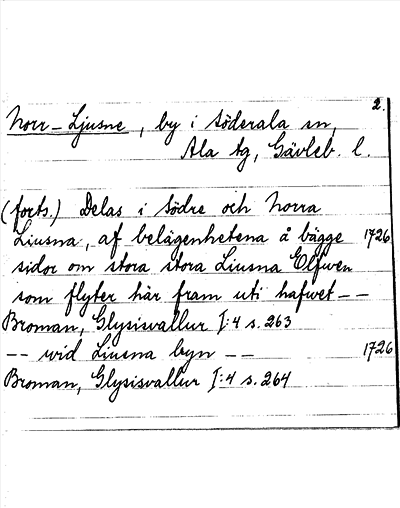 2.
Norr-Ljusne, by i Söderala sn,
Ala tg, Gävleb. l.
(forts.) Delas i södre och Norra
Liusna, af belägenhetena å bägge 1726
sidor om stora stora Liusna Elfwen
som flyter här fram uti hafwet --
Broman, Glysisvallur I:4 s. 263
-- wid Liusna byn -- 1726
Broman, Glysisvallur I:4 s. 264